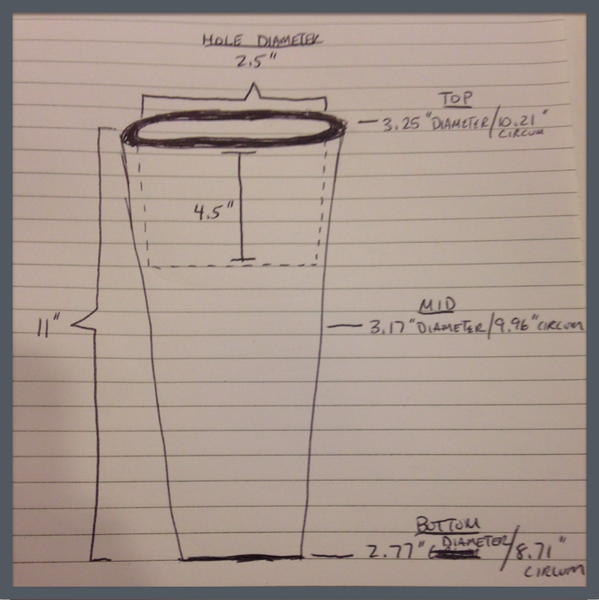 HOLE DIAMETER
2.5"
TOP
3.25" DIAMETER/10.21"
CIRCUM
4.5"
11"
MID
3.17" DIAMETER/9.96" CIRCUM
BOTTOM
DIAMETER
2.77" /8.71"
CIRCUM